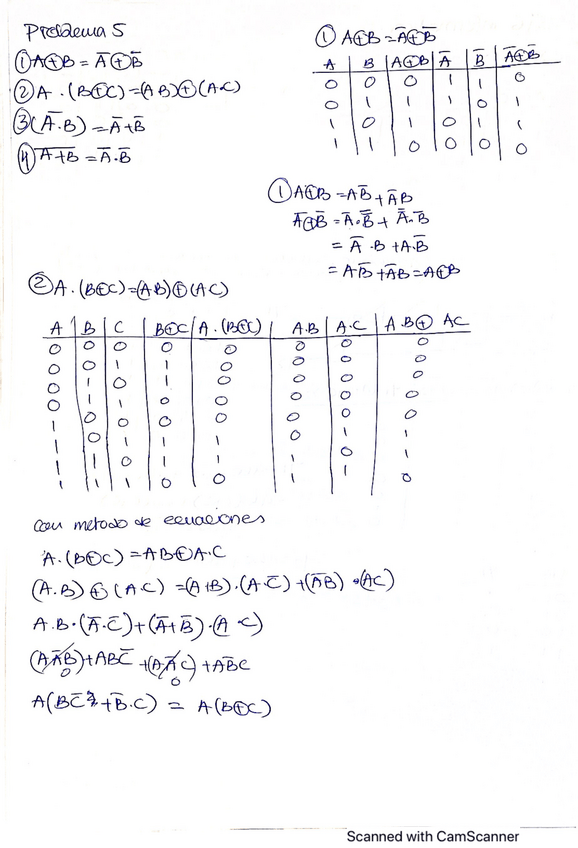 Problema 5
① A⊕B = A̅⊕B̅
② A · (B⊕C) = (AB)⊕(A·C)
③ (A̅·B) = A̅+B̅
④ \overline{A+B} = A̅·B̅
① A⊕B = A̅⊕B̅
A | B | A⊕B | A̅ | B̅ | A̅⊕B̅
0 | 0 | 0 | 1 | 1 | 0
0 | 1 | 1 | 1 | 0 | 1
1 | 0 | 1 | 0 | 1 | 1
1 | 1 | 0 | 0 | 0 | 0
① A⊕B = AB̅ + A̅B
A̅⊕B̅ = A̅·\overline{B̅} + \overline{A̅}·B̅
= A̅·B + A·B̅
= AB̅ + A̅B = A⊕B
② A·(B⊕C) = (A·B)⊕(AC)
A | B | C | B⊕C | A·(B⊕C) | A·B | A·C | A·B⊕ AC
0 | 0 | 0 | 0 | 0 | 0 | 0 | 0
0 | 0 | 1 | 1 | 0 | 0 | 0 | 0
0 | 1 | 0 | 1 | 0 | 0 | 0 | 0
0 | 1 | 1 | 0 | 0 | 0 | 0 | 0
1 | 0 | 0 | 0 | 0 | 0 | 0 | 0
1 | 0 | 1 | 1 | 1 | 0 | 1 | 1
1 | 1 | 0 | 1 | 1 | 1 | 0 | 1
1 | 1 | 1 | 0 | 0 | 1 | 1 | 0
con metodo de ecuaciones
A·(B⊕C) = AB⊕A·C
(A·B) ⊕ (AC) = (A+B)·(A·C̅) + (A̅B̅)·(AC)
A·B·(A̅·C̅) + (A̅+B̅)·(A·C)
(AA̅B) + ABC̅ + (AA̅C) + AB̅C
0 0
A(BC̅ + B̅·C) = A(B⊕C)
Scanned with CamScanner